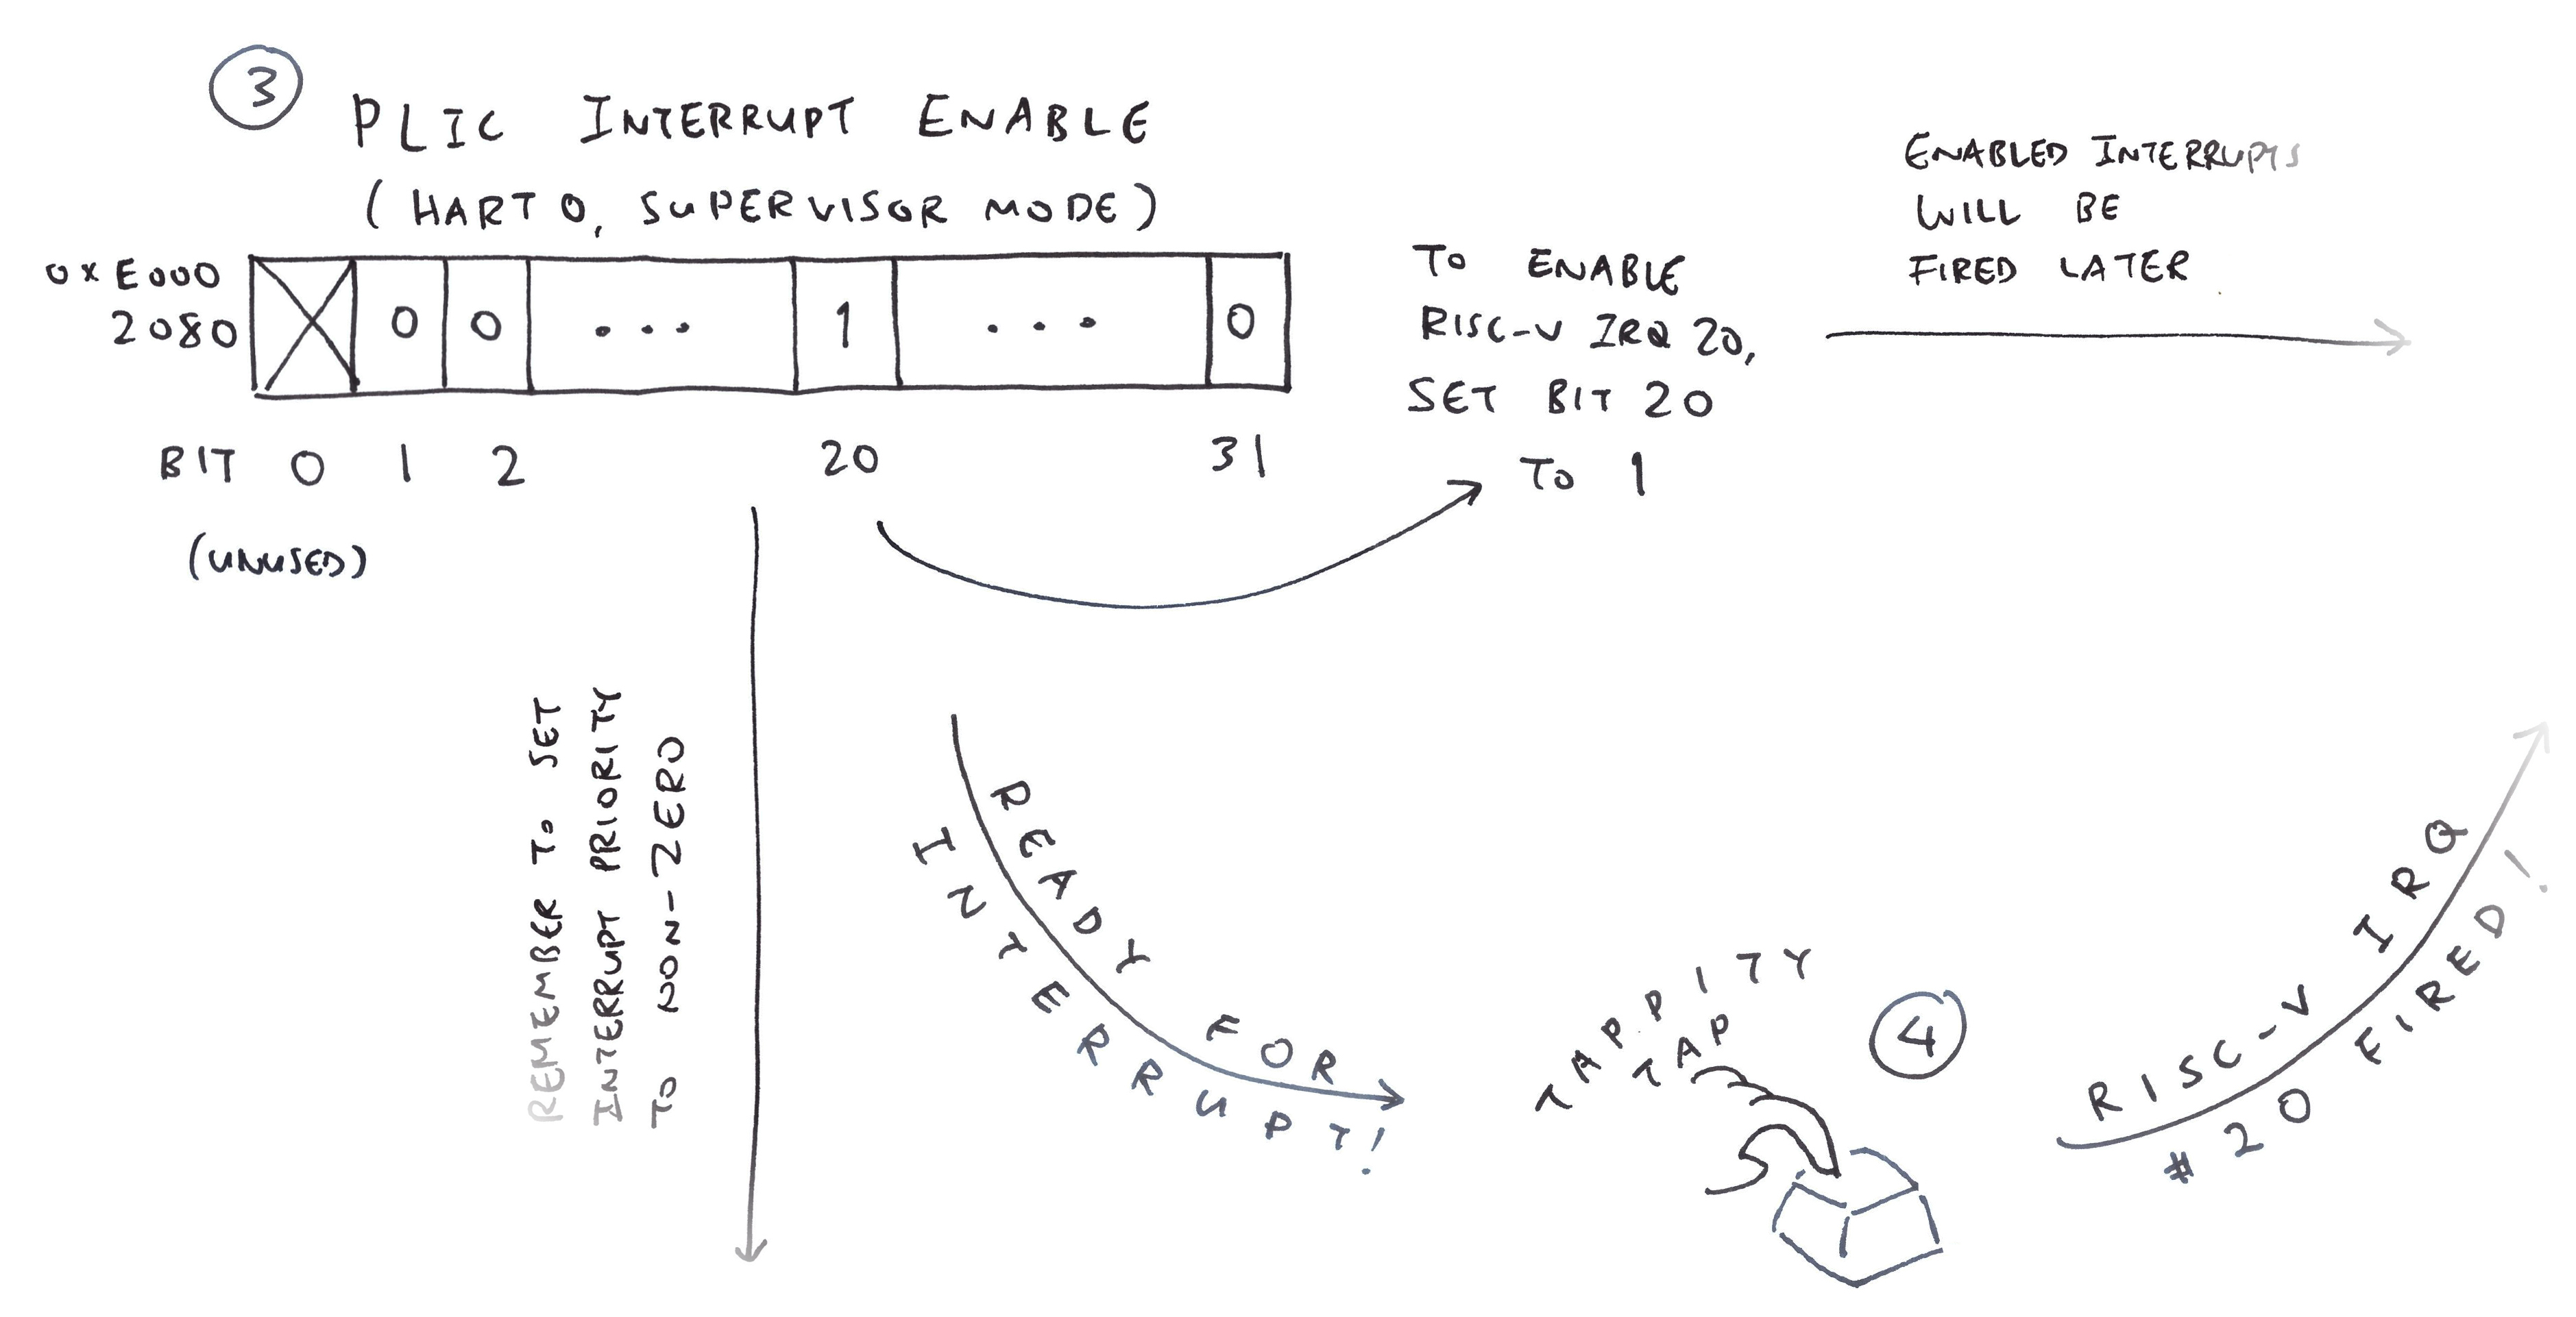 3
PLIC INTERRUPT ENABLE
(HART 0, SUPERVISOR MODE)
0xE000
2080
0 0 ... 1 ... 0
BIT 0 1 2 20 31
(UNUSED)
TO ENABLE
RISC-V IRQ 20,
SET BIT 20
TO 1
ENABLED INTERRUPTS
WILL BE
FIRED LATER
REMEMBER TO SET
INTERRUPT PRIORITY
TO NON-ZERO
READY FOR
INTERRUPT!
TAPPITY
TAP
4
RISC-V IRQ
#20 FIRED!